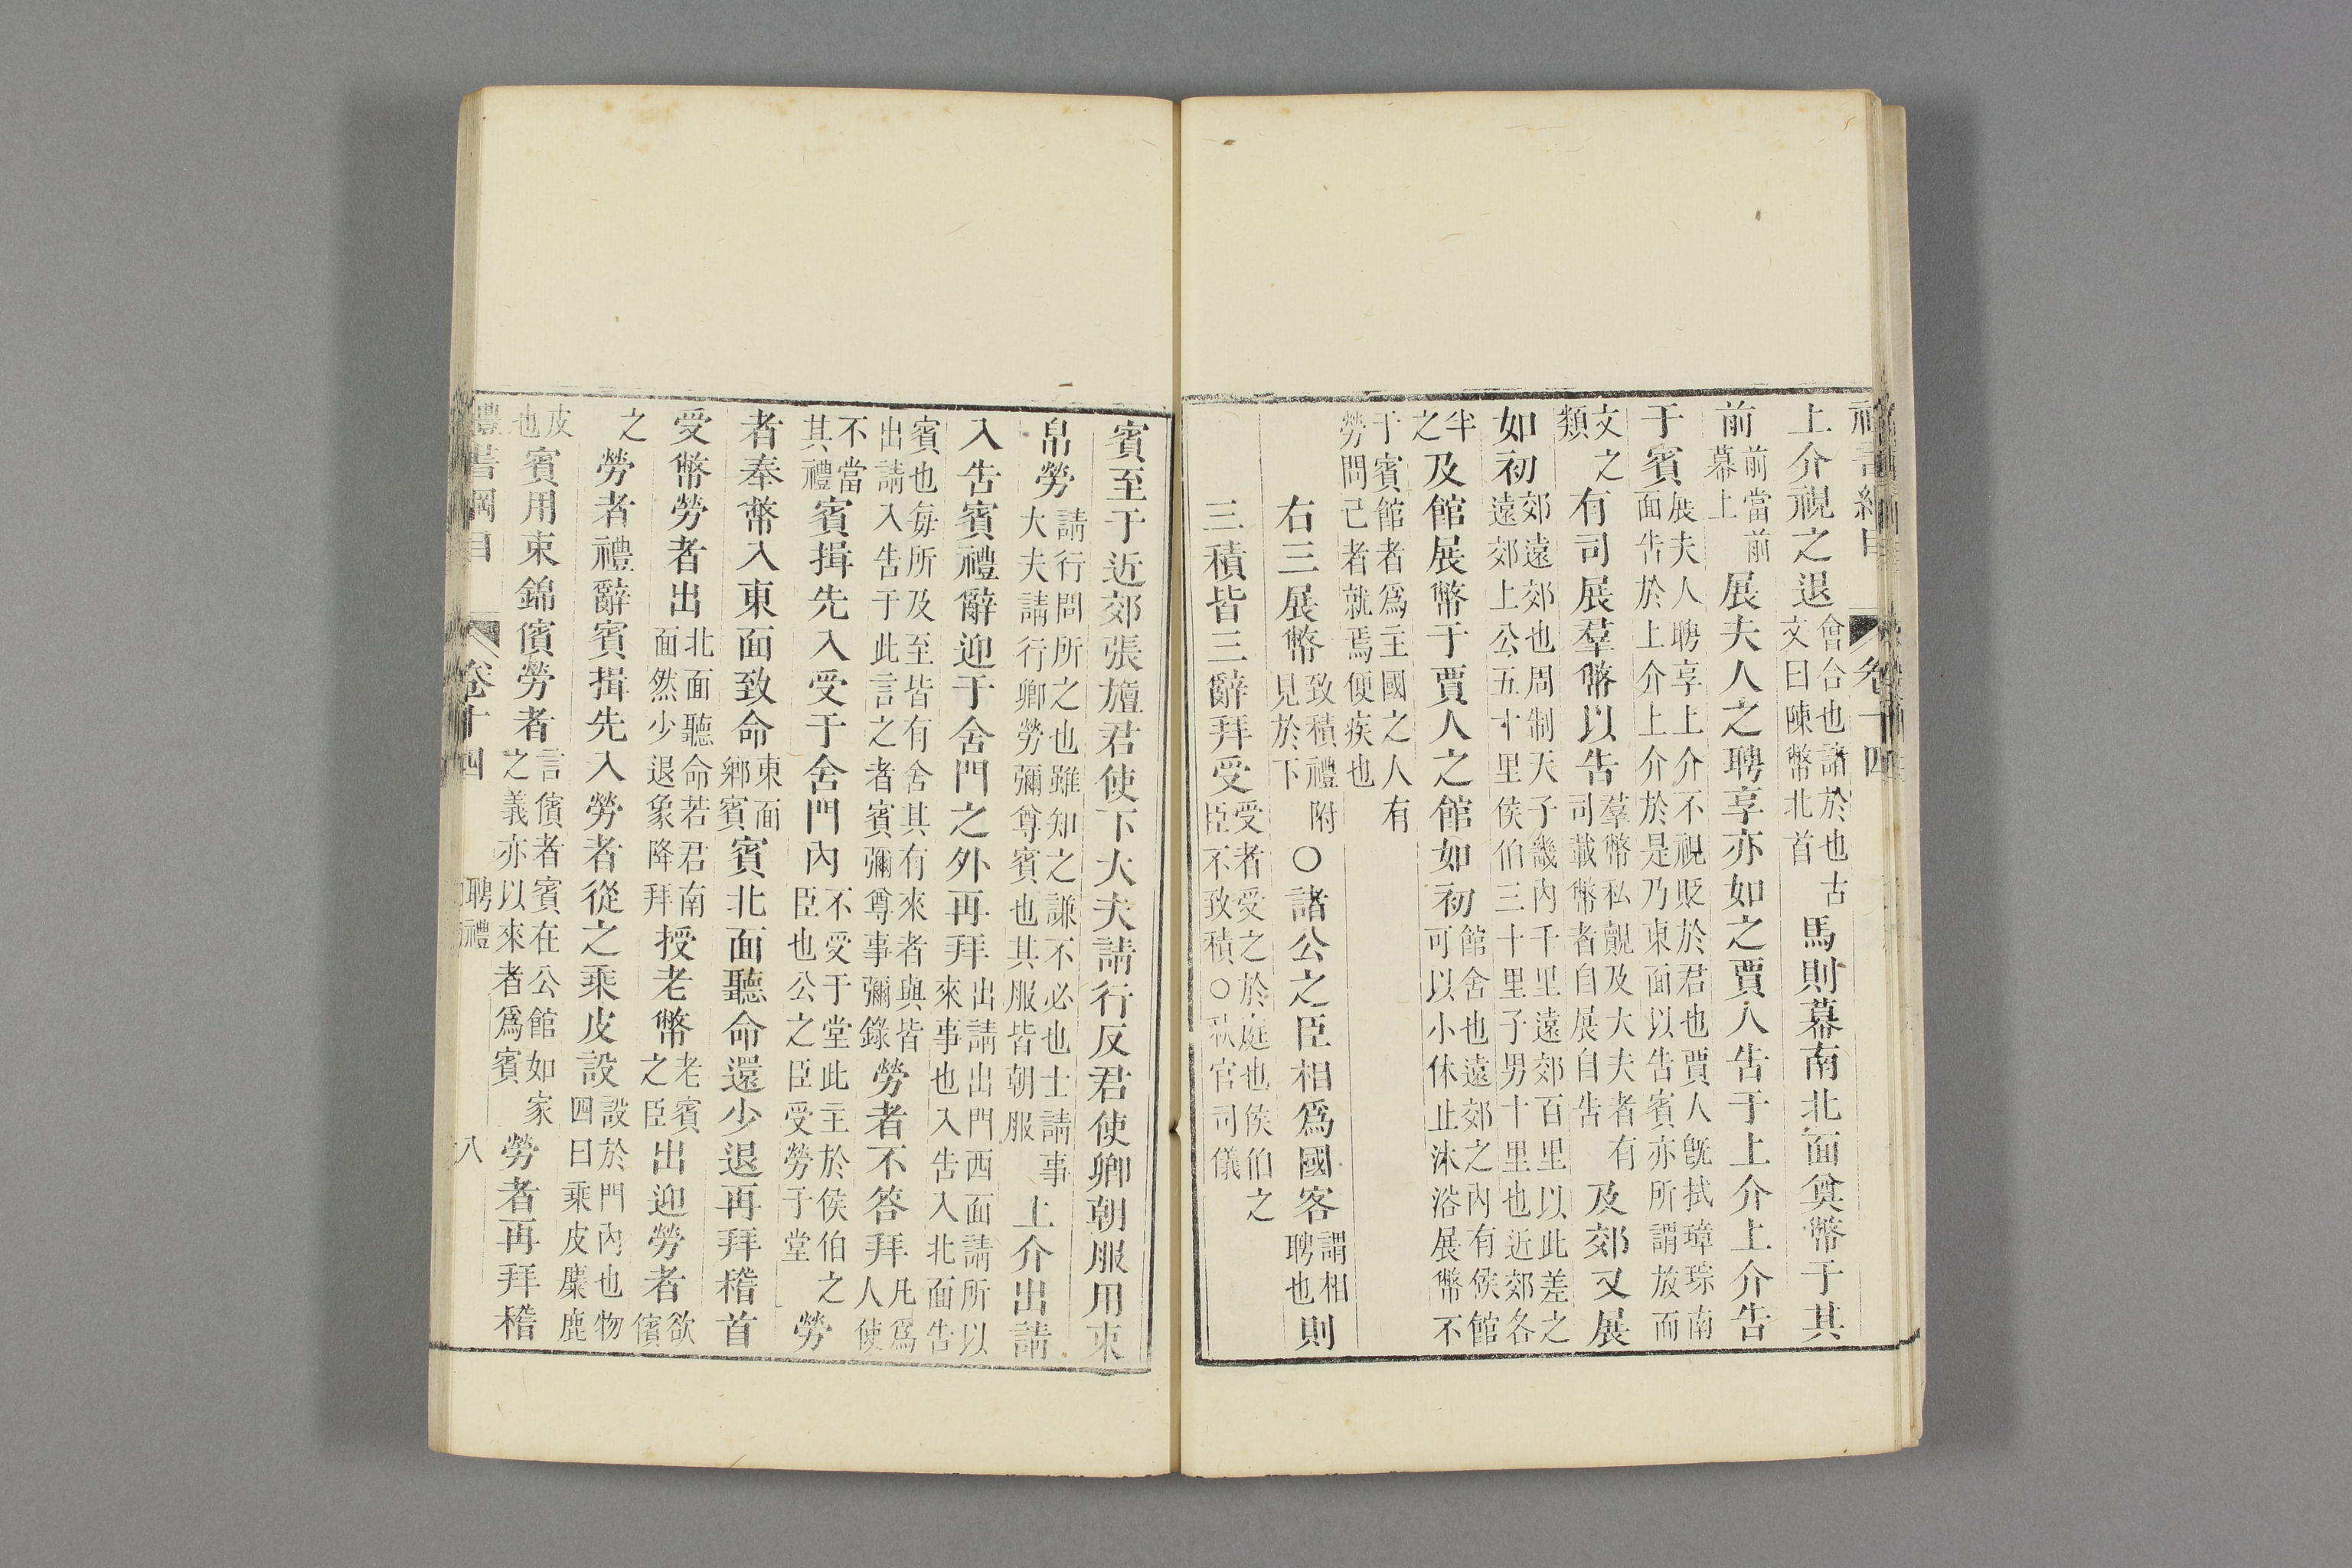 禮書綱目 卷十四
上介視之退會合也諸於也古文曰陳幣北首馬則幕南北面奠幣于其
前前當前幕上展夫人之聘享亦如之賈人告于上介上介告
于賓展夫人聘享上介不視貶於君也賈人旣拭璋琮南面告於上介上介於是乃東面以告賓亦所謂放而
文之類有司展羣幣以告羣幣私覿及大夫者有司載幣者自展自告及郊又展
如初郊遠郊也周制天子畿內千里遠郊百里以此差之遠郊上公五十里侯伯三十里子男十里也近郊各
半之及館展幣于賈人之館如初館舍也遠郊之內有候館可以小休止沐浴展幣不
于賓館者爲主國之人有勞問己者就焉便疾也
右三展幣致積禮附見於下○諸公之臣相爲國客謂相聘也則
三積皆三辭拜受受者受之於庭也侯伯之臣不致積○秋官司儀
賓至于近郊張旜君使下大夫請行反君使卿朝服用束
帛勞請行問所之也雖知之謙不必也士請事大夫請行卿勞彌尊賓也其服皆朝服上介出請
入告賓禮辭迎于舍門之外再拜出請出門西面請所以來事也入告入北面告
賓也每所及至皆有舍其有來者與皆出請入告于此言之者賓彌尊事彌錄勞者不答拜凡爲人使
不當其禮賓揖先入受于舍門內不受于堂此主於侯伯之臣也公之臣受勞于堂勞
者奉幣入東面致命東面鄉賓賓北面聽命還少退再拜稽首
受幣勞者出北面聽命若君南面然少退象降拜授老幣老賓之臣出迎勞者欲儐
之勞者禮辭賓揖先入勞者從之乘皮設設於門內也物四曰乘皮麋鹿
皮也賓用束錦儐勞者言儐者賓在公館如家之義亦以來者爲賓勞者再拜稽
禮書綱目 卷十四 聘禮 八